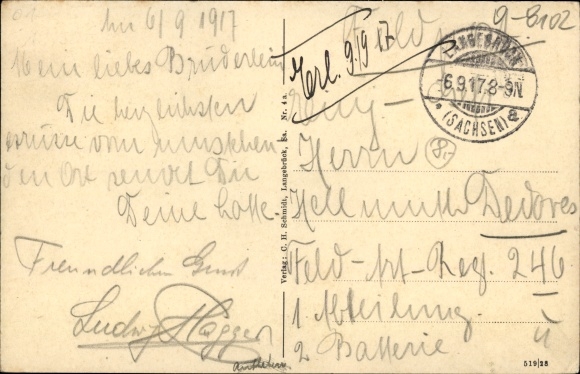 6/9 1917
Mein liebes Brüderlein
Die herzlichsten
Grüsse vom umstehen-
den Ort sendet Dir
Deine Lotte.
Freundlichen Gruß
Ludwig
Verlag: C. H. Schmidt, Langebrück, Sa. Nr. 4 a.
9-8102
Erl. 9.9.17.
LANGEBRÜCK
6.9.17.8-9N
* (SACHSEN) a
Herrn
8,-
Hellmuth Dedores
Feld-Art-Reg. 246
1. Abteilung.
2 Batterie
519/28